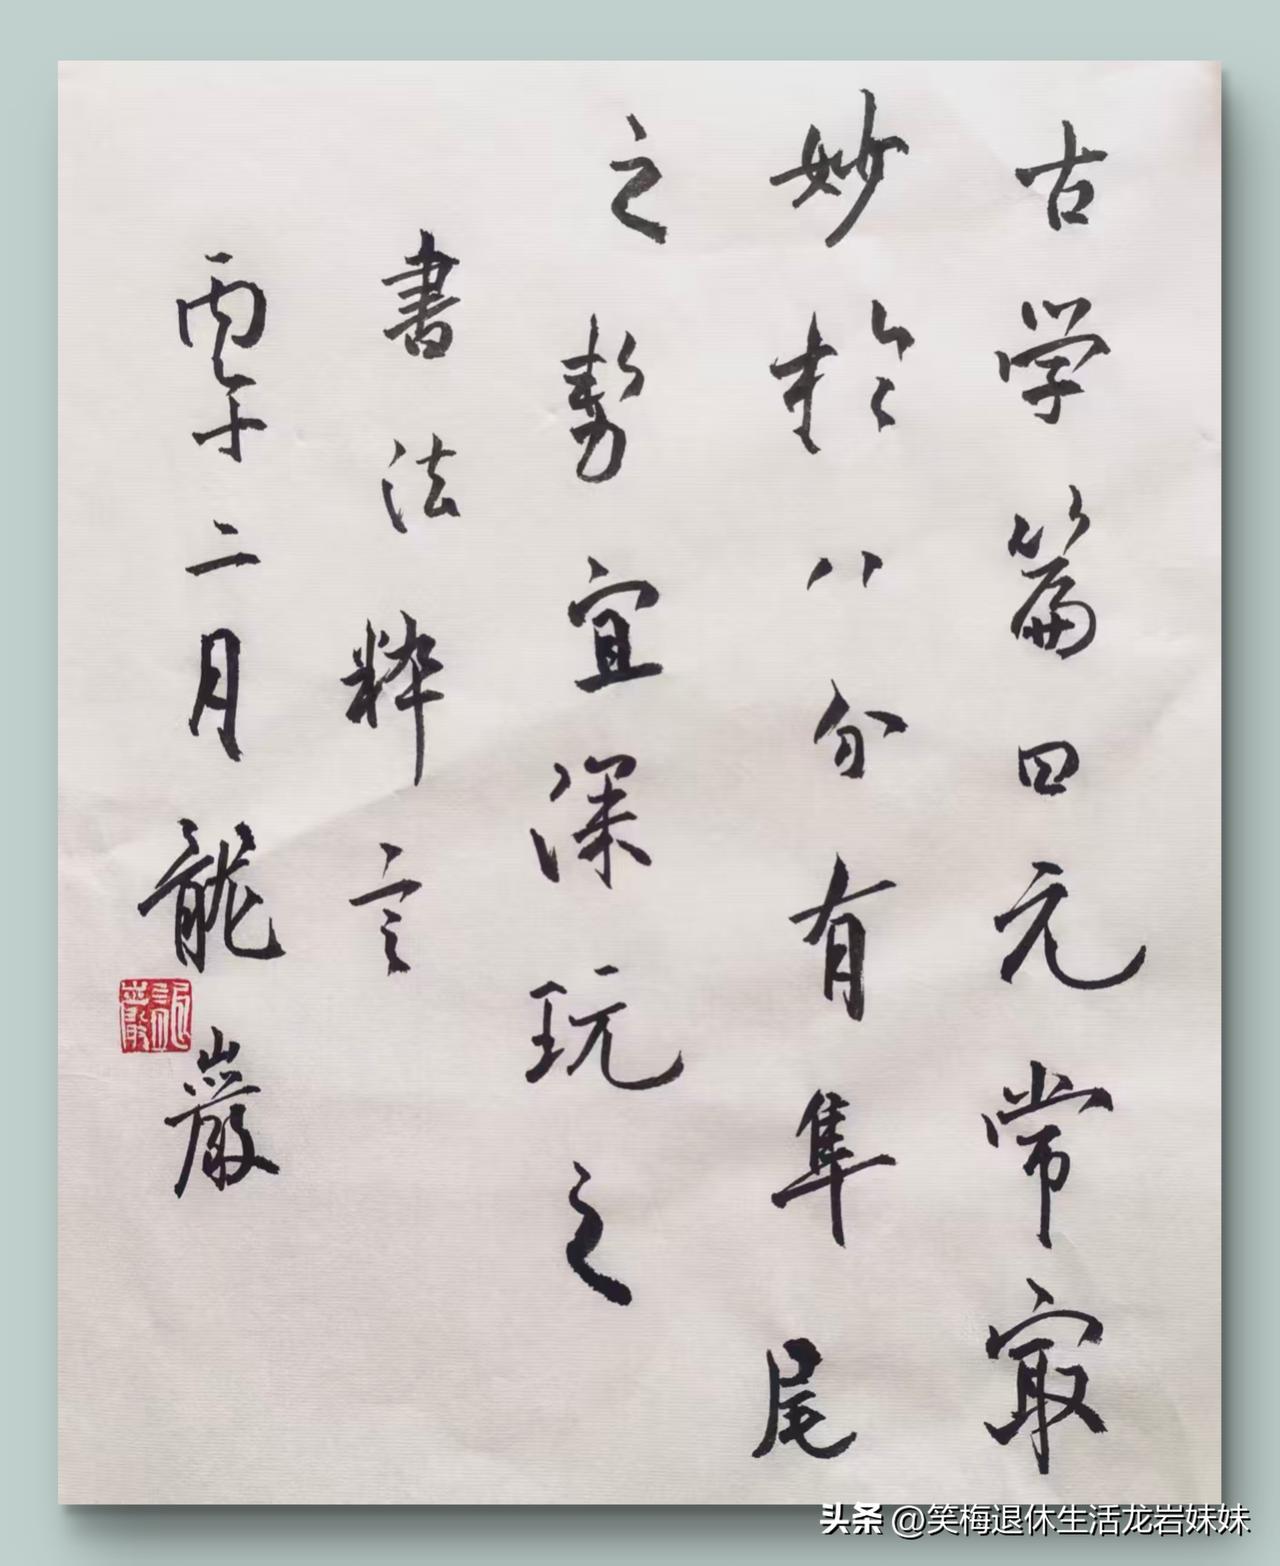 古学篇曰元常最
妙於八分有隼尾
之勢宜深玩之
書法粹言
丙午二月龍巖
头条 @笑梅退休生活龙岩妹妹